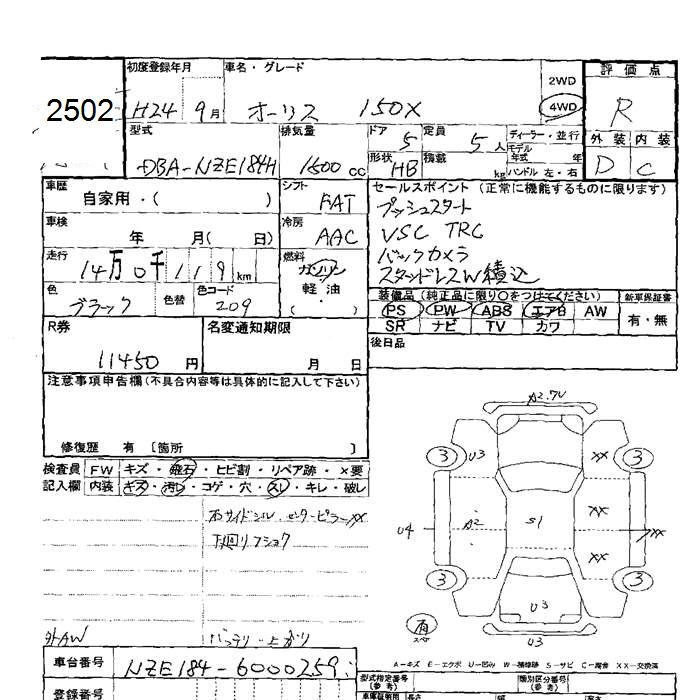 初度登録年月 車名・グレード 2WD 評価点
2502 H24 9月 オーリス 150X 4WD R
型式 排気量 ドア 5 定員 5人 ディーラー・並行 外装 内装
モデル年式 年
DBA-NZE184H 1500cc 形状 HB 積載 kg ハンドル 左・右 D C
車歴 シフト セールスポイント (正常に機能するものに限ります)
自家用・( ) FAT プッシュスタート
車検 冷房 VSC TRC
年 月( 日) AAC バックカメラ
走行 燃料 スタッドレスW積込
14万0千119km ガソリン
軽・油
( )
色 色替 色コード 装備品 (純正品に限り○をつけてください) 新車保証書
ブラック 209 PS PW ABS エアB AW 有・無
SR ナビ TV カワ
R券 名変通知期限 後日品
11450円 月 日
注意事項申告欄(不具合内容等は具体的に記入して下さい)
修復歴 有 〔箇所 〕
検査員 FW キズ・飛石・ヒビ割・リペア跡・×要
記入欄 内装 キズ・汚レ・コゲ・穴・スレ・キレ・破レ
右サイドシル・センターピラーXX
下廻リフショク
外AW バッテリー上がり
A2.7U
3 U3 XX 3
U4 A2 S1 XX XX
XX
3 U3 3
有
スペア
U3
A-キズ E-エクボ U-凹み W-補修跡 S-サビ C-腐食 XX-交換済
車台番号 NZE184-6000259
型式指定番号 (参考) 類別区分番号 (参考)
登録番号
長さ